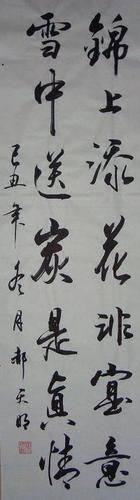 錦上添花非意
雪中送炭是真情
己丑年冬月郝天明